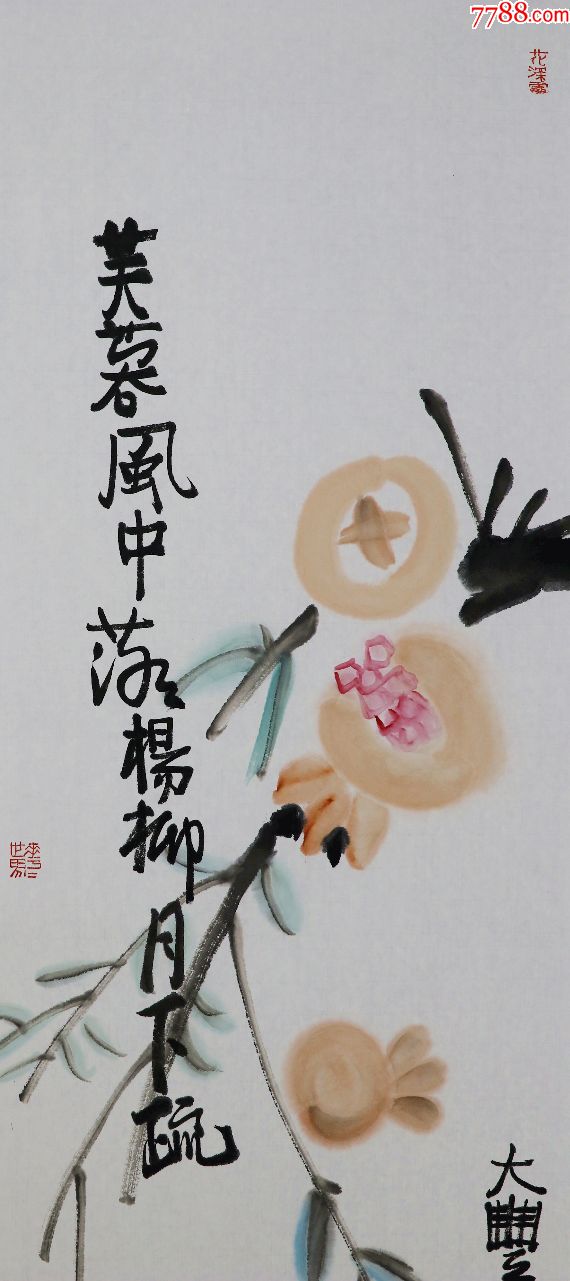 7788.com
芙蓉風中落楊柳月下疏
大豐